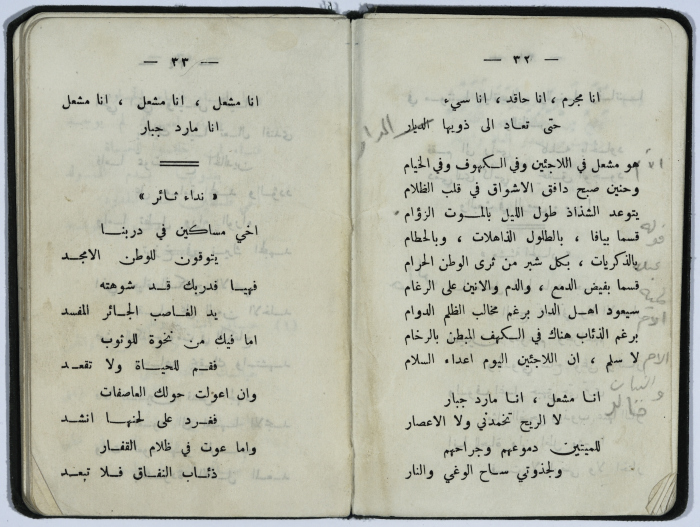 — ٣٢ —
انا مجرم ، انا حاقد ، انا سيء
حتى تعاد الى ذويها الديار
هو مشعل في اللاجئين وفي الكهوف وفي الخيام
وحنين صبح دافق الاشواق في قلب الظلام
يتوعد الشذاذ طول الليل بالموت الزؤام
قسما بيافا ، بالطلول الذاهلات ، وبالحطام
بالذكريات ، بكل شبر من ثرى الوطن الحرام
قسما بفيض الدمع ، والدم والانين على الرغام
سيعود اهل الدار برغم مخالب الظلم الدوام
برغم الذئاب هناك في الكهف المبطن بالرخام
لا سلم ، ان اللاجئين اليوم اعداء السلام
انا مشعل ، انا مارد جبار
لا الريح تخمدني ولا الاعصار
للميتين دموعهم وجراحهم
ولجذوتي ساح الوغي والنار
— ٣٣ —
انا مشعل ، انا مشعل ، انا مشعل
انا مارد جبار
« نداء ثائر »
اخي مساكين في دربنا
يتوقون للوطن الامجد
فهيا فدربك قد شوهته
يد الغاصب الجائر المفسد
اما فيك من نخوة للوثوب
فقم للحياة ولا تقعد
وان اعولت حولك العاصفات
فغرد على لحنها انشد
واما عوت في ظلام القفار
ذئاب النفاق فلا تبعد